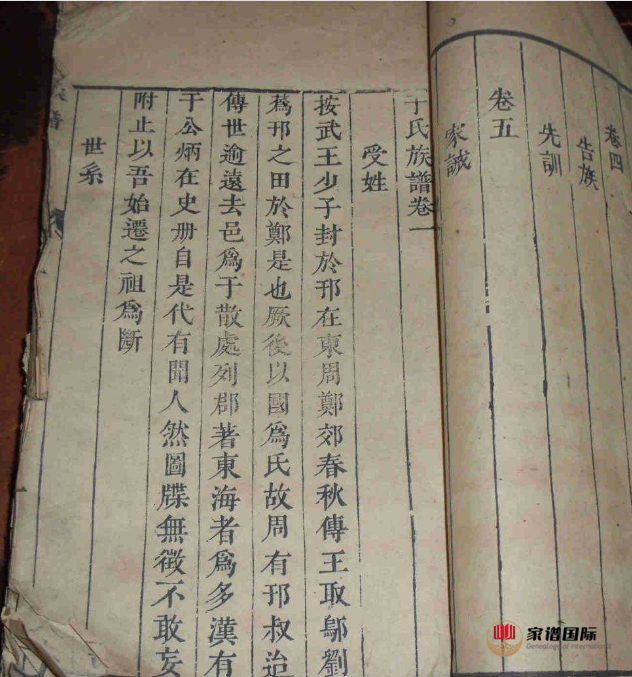 卷四
告族
先訓
卷五
家誡
于氏族譜卷一
受姓
按武王少子封於邘在東周鄭郊春秋傳王取鄔劉
蒍邘之田於鄭是也厥後以國為氏故周有邘叔迨
傳世逾遠去邑爲于散處列郡著東海者爲多漢有
于公炳在史册自是代有聞人然圖牒無徴不敢妄
附止以吾始遷之祖爲斷
世系
家谱国际
Genealogy of International